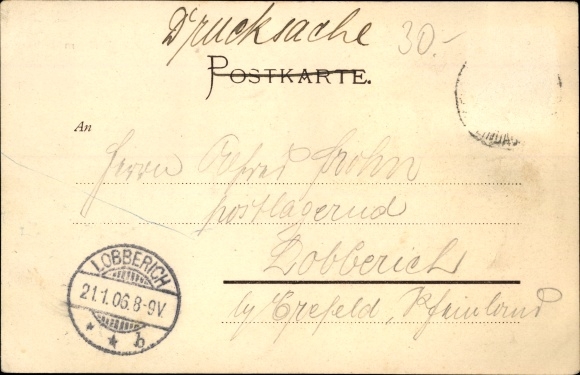 Drucksache 30.-
POSTKARTE.
An
Herrn Alfred Frohn
postlagernd
Lobberich
by Crefeld, Rheinland
LOBBERICH
21.1.06.8-9V.
* * b